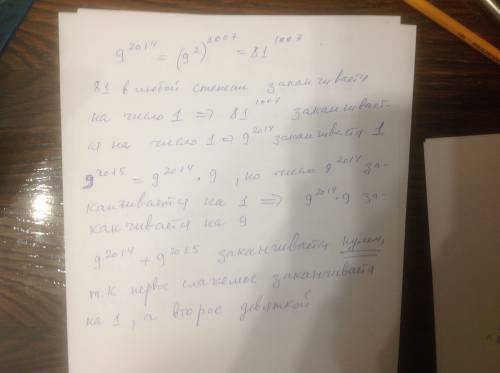 9^2014 = (9^2)^1007 = 81^1007
81 в любой степени заканчивается
на число 1 => 81^1007 заканчивает-
ся на число 1 => 9^2014 заканчивается 1
9^2015 = 9^2014 · 9, но число 9^2014 за-
канчивается на 1 => 9^2014 · 9 за-
канчивается на 9
9^2014 + 9^2015 заканчивается нулем,
т.к первое слагаемое заканчивается
на 1, а второе девяткой